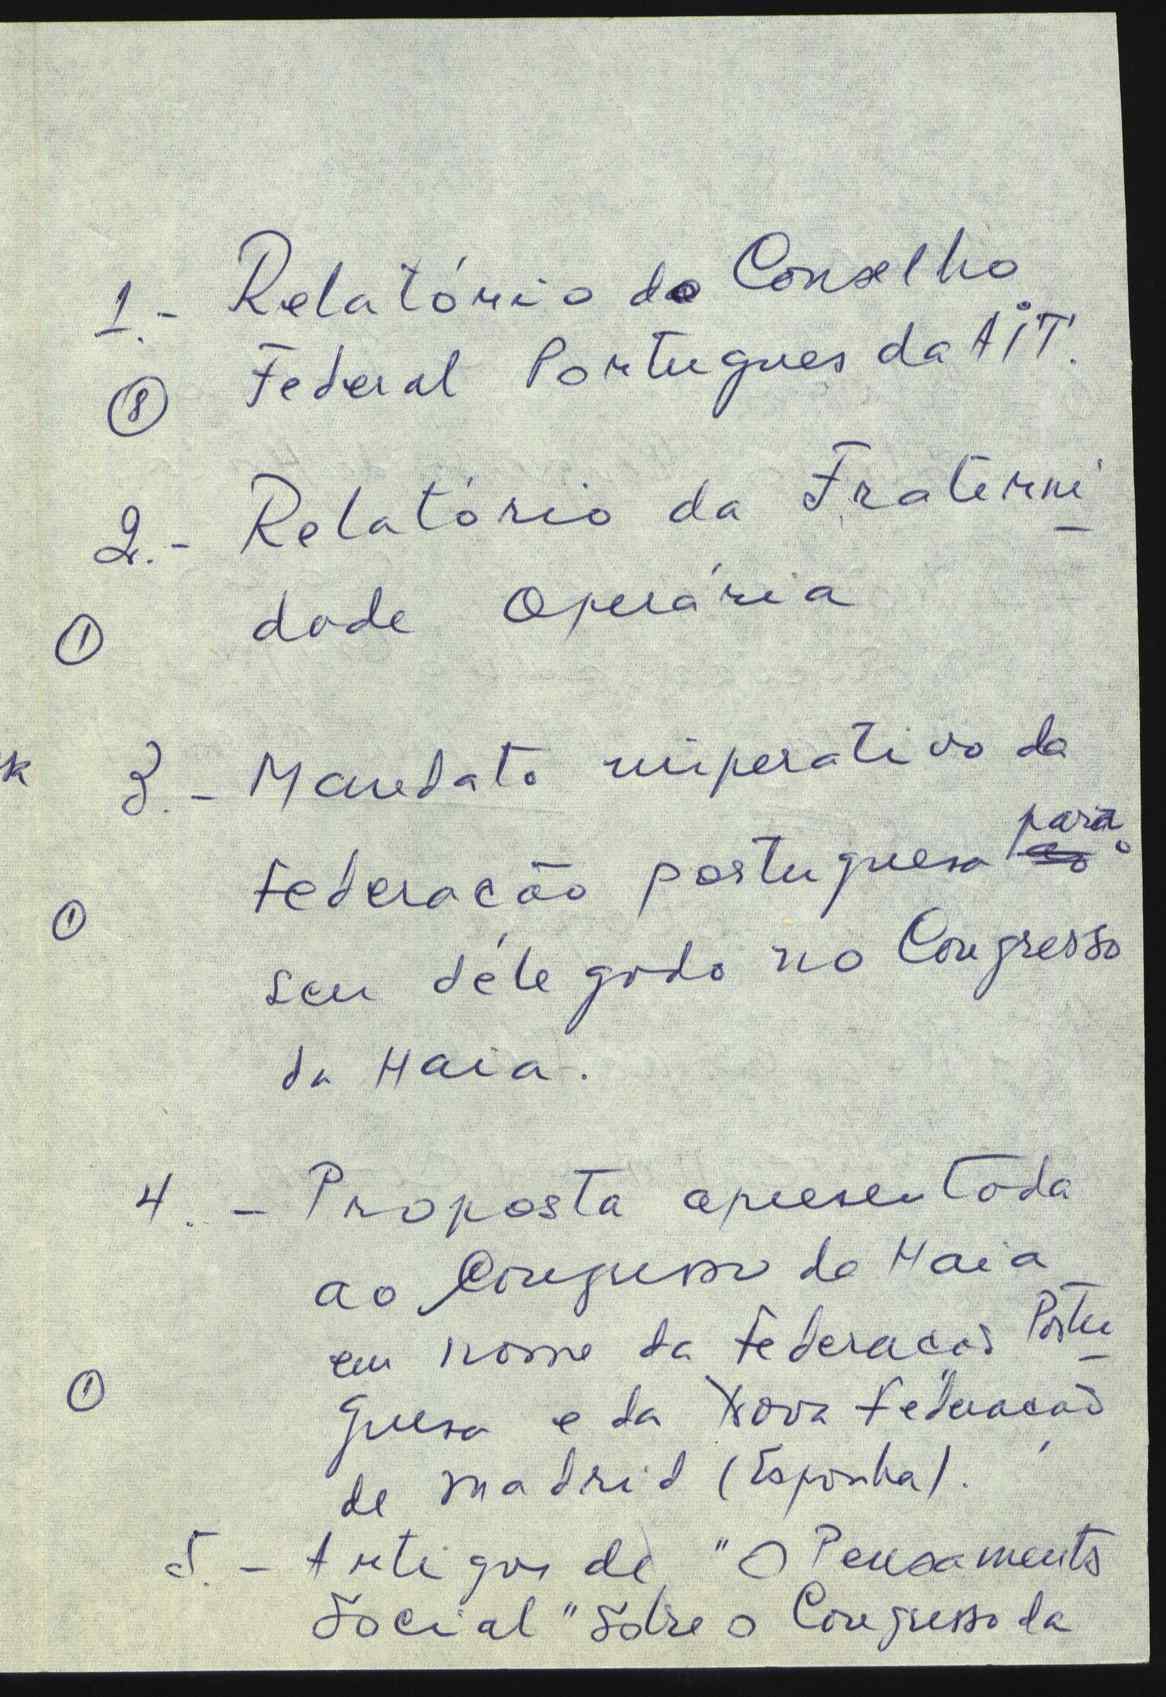 1.- Relatório do Conselho
Federal Portugues da AIT.
8
2.- Relatório da Fraterni
dade Operária
1
3.- Mandato imperativo da
Federação portuguesa para o
1
seu délegado no Congresso
da Haia.
4.- Proposta apresentada
ao Congresso da Haia
em nome da Federação Portu
1
guesa e da Nova Federação
de Madrid (Espanha).
5.- Artigos de "O Pensamento
Social" sobre o Congresso da